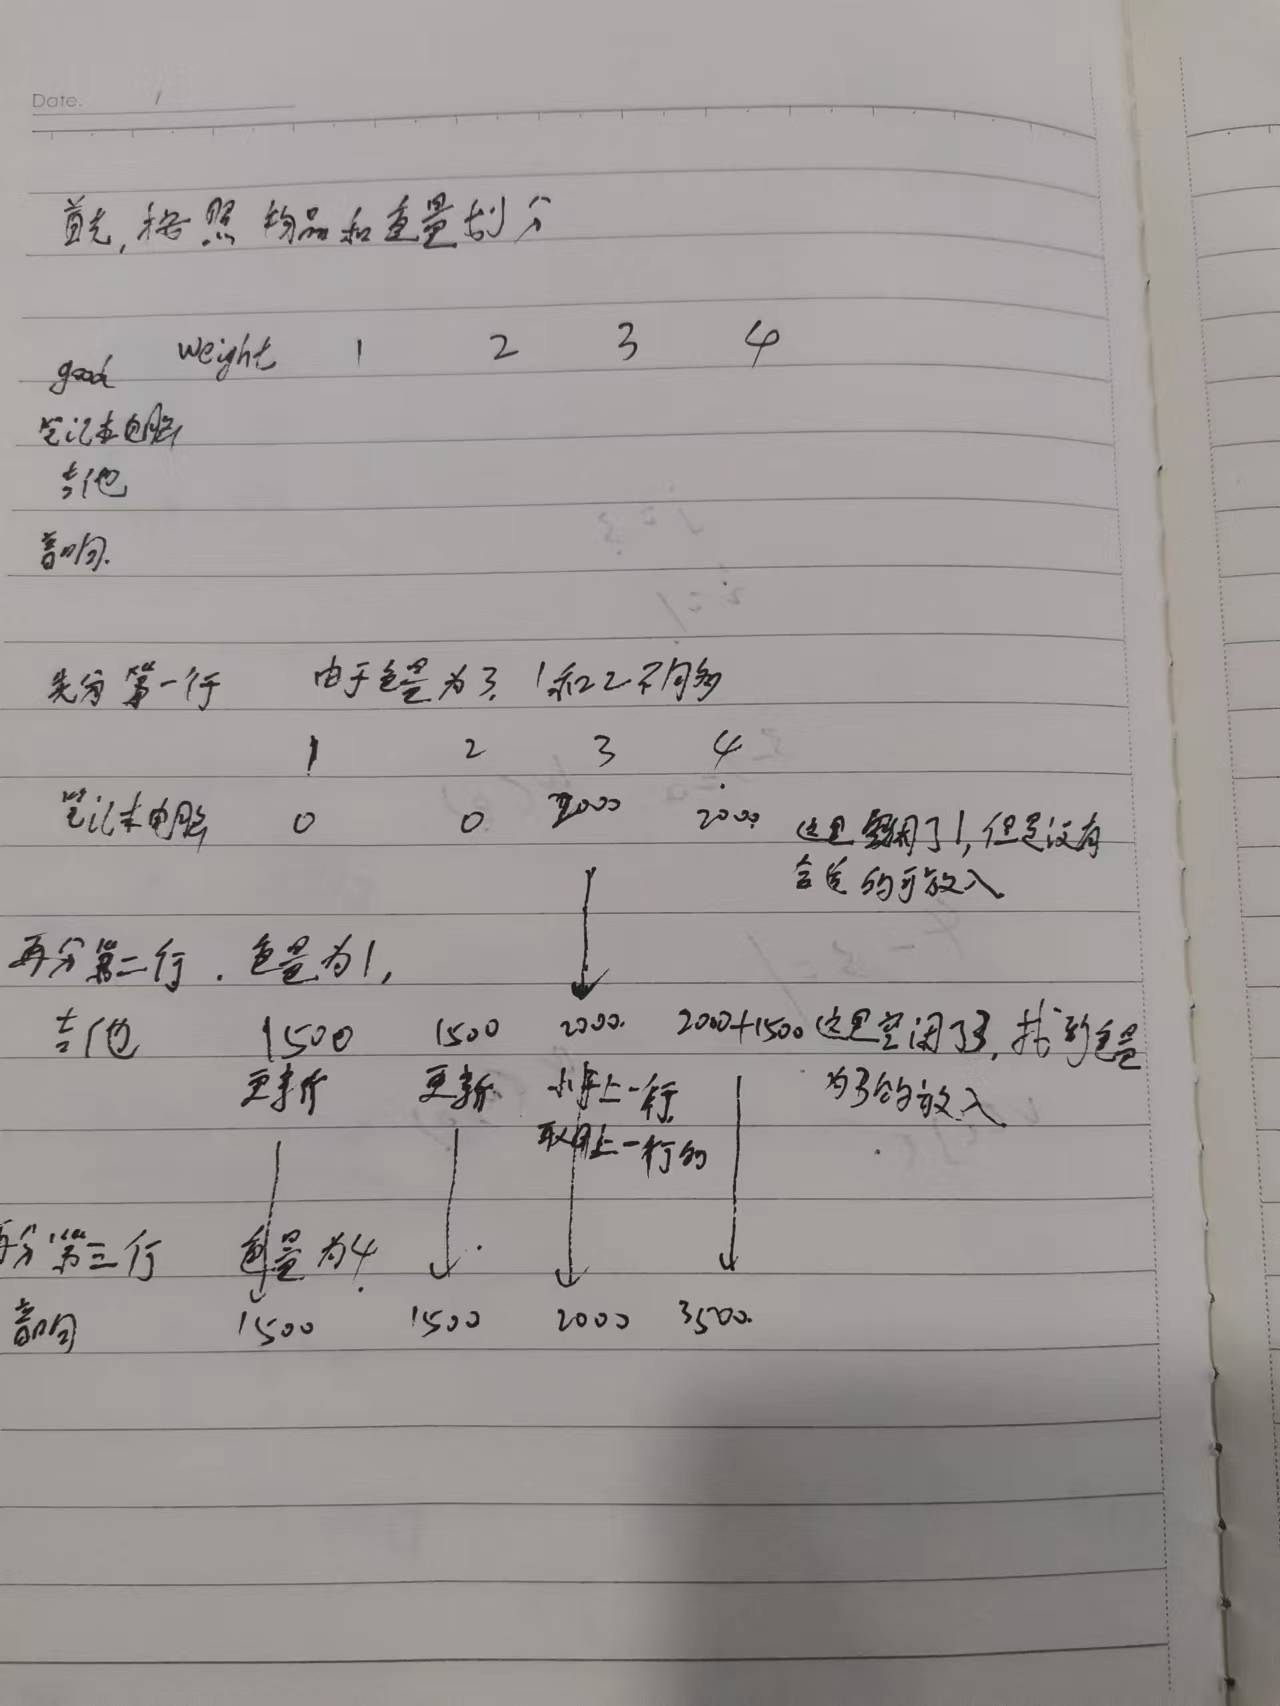 Date.
首先,按照物品和重量划分
good weight 1 2 3 4
笔记本电脑
吉他
音响.
先分第一行 由于包量为3, 1和2不够
1 2 3 4
笔记本电脑 0 0 2000 2000 这里空闲了1,但是没有
合适的可放入
再分第二行. 包量为1,
吉他 1500 1500 2000. 2000+1500 这里空闲了3,找到包量
更新 更新 小于上一行 为3的放入
取用上一行的
再分第三行 包量为4
音响 1500 1500 2000 3500.